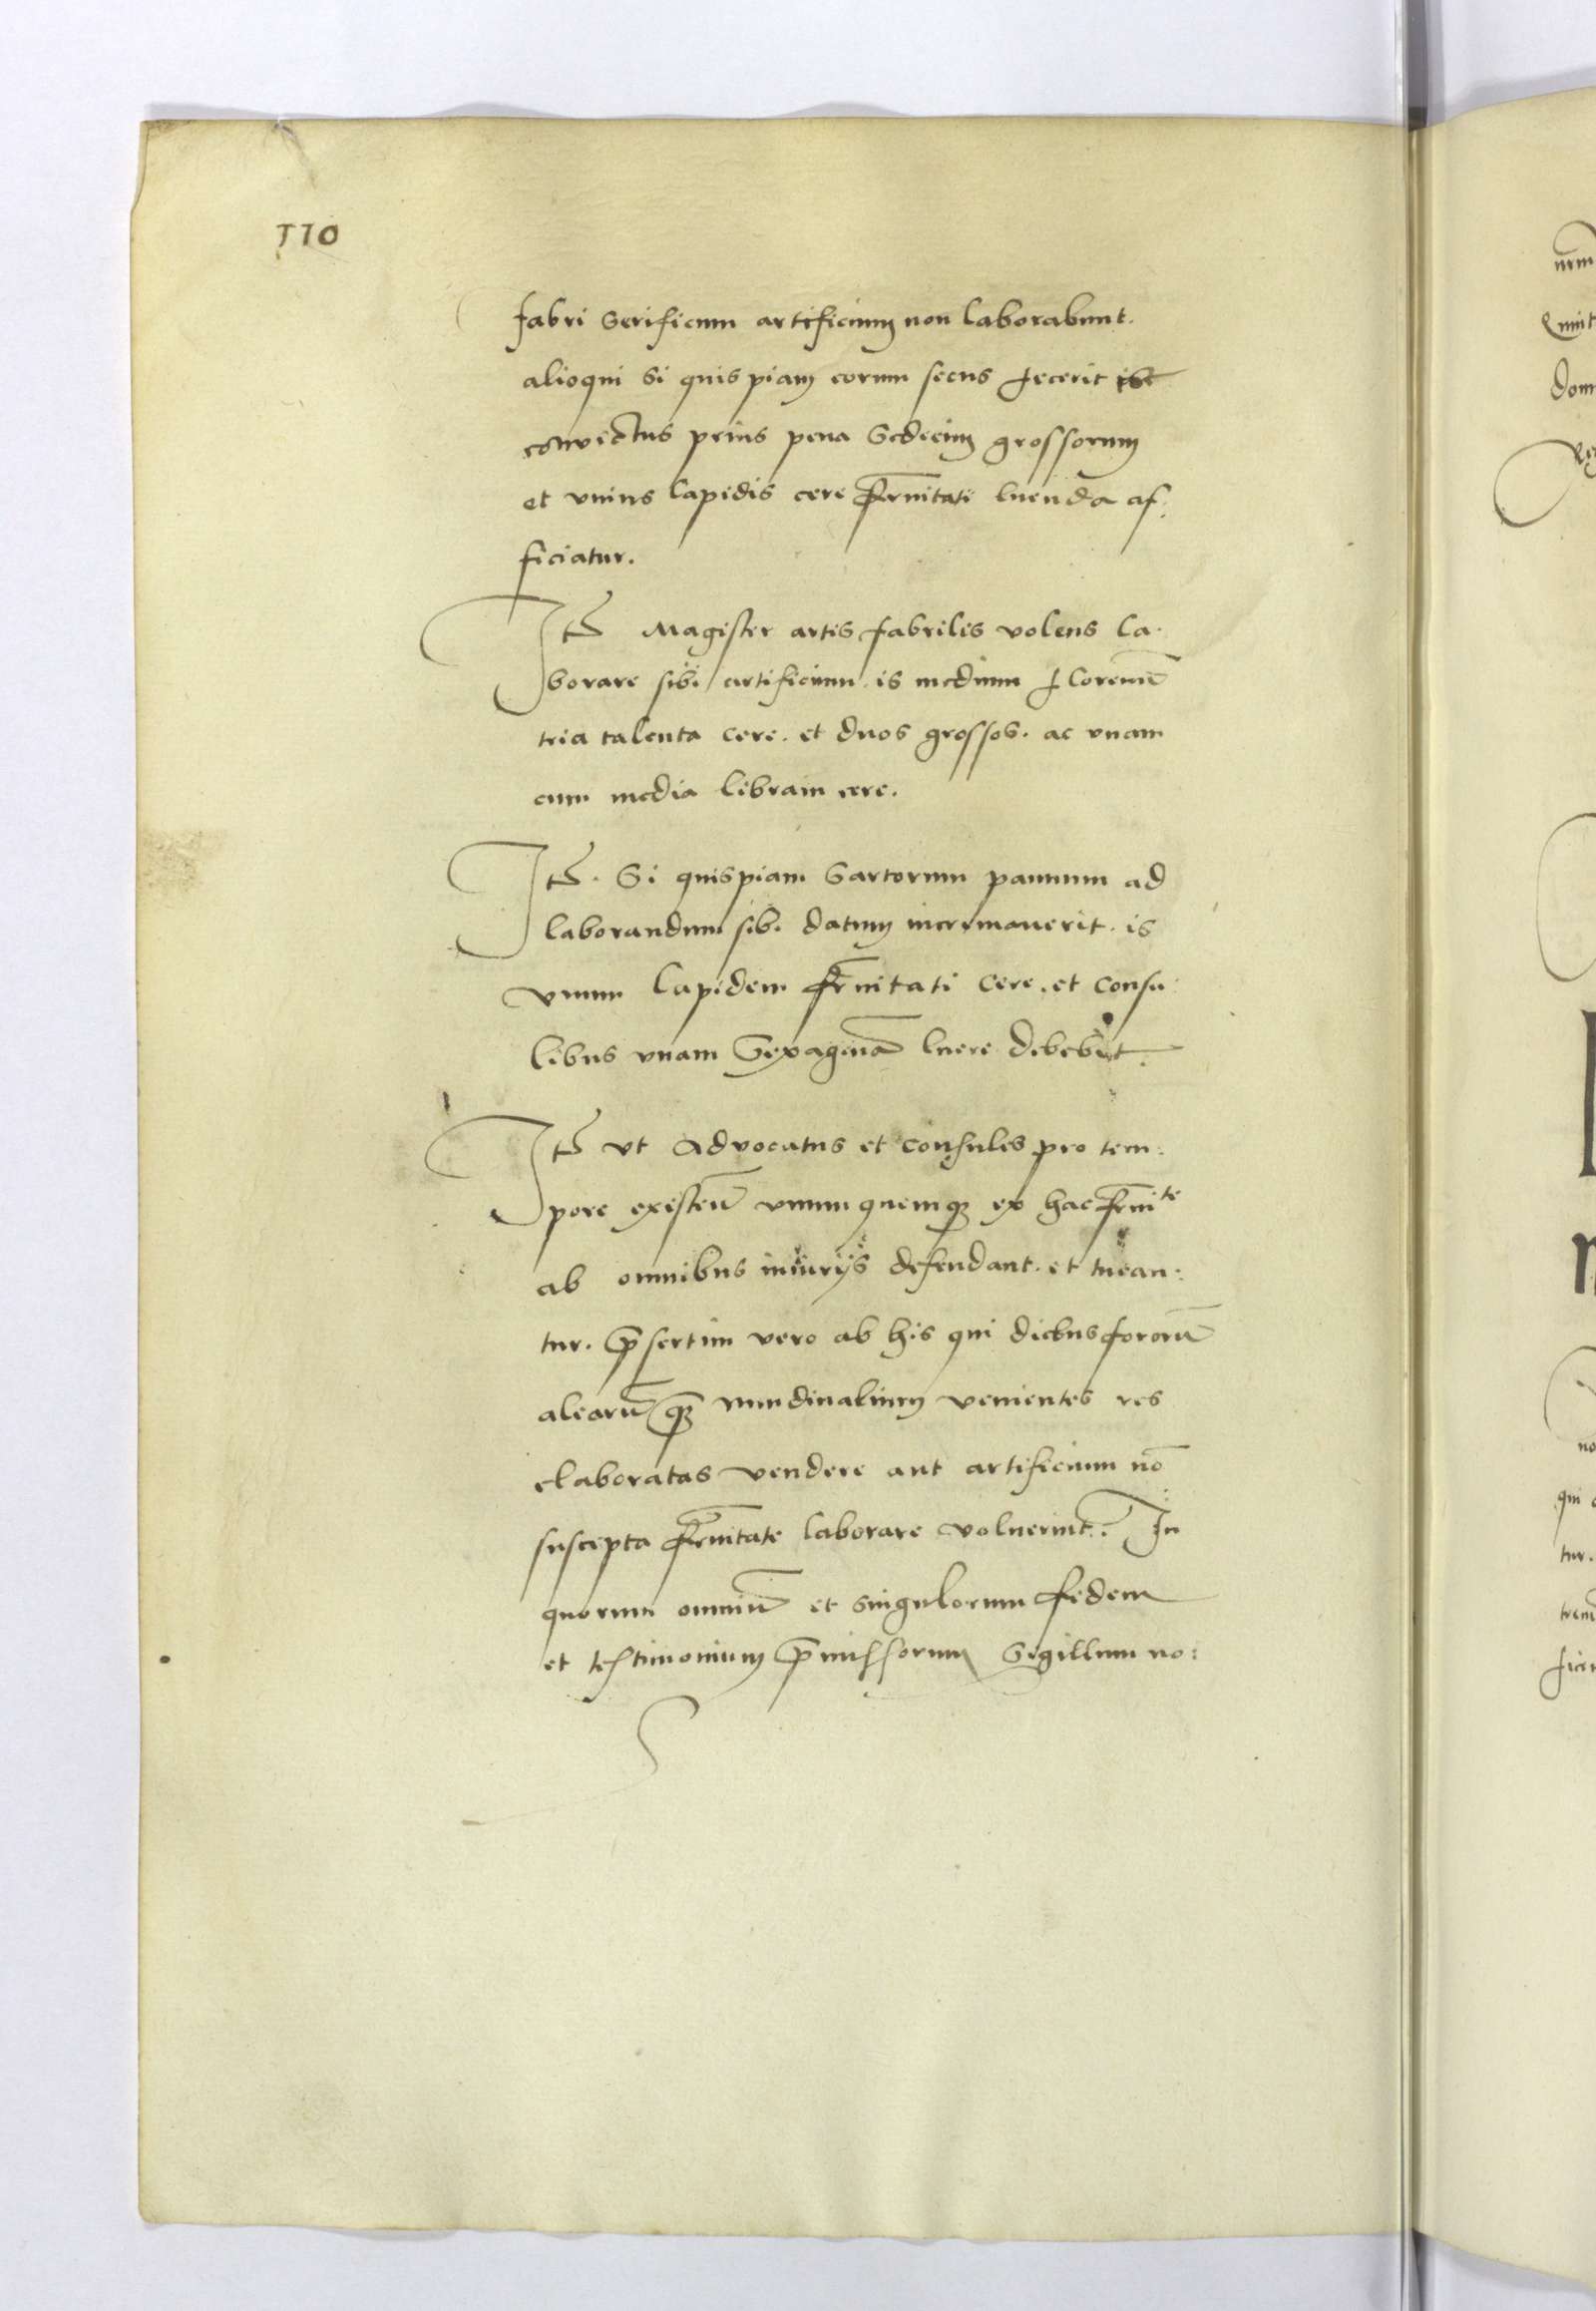 110
fabri Serificum artificium non laborabunt.
alioqui Si quispiam eorum secus fecerit
convictus prius pena Sedecim grossorum
et vnius lapidis cere frnitati luenda af:
ficiatur.
Itm Magister artis fabrilis volens la:
borare sibi artificium is medium florenū
tria talenta cere. et duos grossos. ac vnam
cum media libram cere.
Itm. Si quispiam Sartorum pannum ad
laborandum sibi datum incremauerit. is
vnum lapidem frnitati cere. et consu:
libus vnam Sexagenā luere debebit.
Itm vt Advocatus et consules pro tem:
pore existeñ vnumquemq3 ex hac frnite
ab omnibus iniurijs defendant. et tuean:
tur. p̄sertim vero ab his qui diebus fororū
alearū q3 nundinalium venientes res
elaboratas vendere aut artificium nō
suscepta frnitate laborare voluerint. In
quorum omniū et singulorum fidem
et testimonium p̄missorum Sigillum no:
nrm